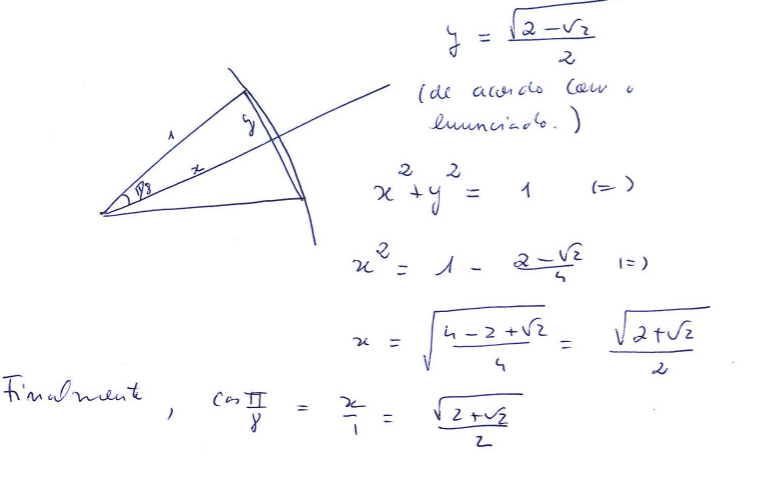 y = √(2 − √2) / 2
(de acordo com o
enunciado.)
1
y
x
π/8
x² + y² = 1 (=)
x² = 1 − (2 − √2)/4 (=)
x = √((4 − 2 + √2)/4) = √(2 + √2) / 2
Finalmente, cos π/8 = x/1 = √(2 + √2) / 2